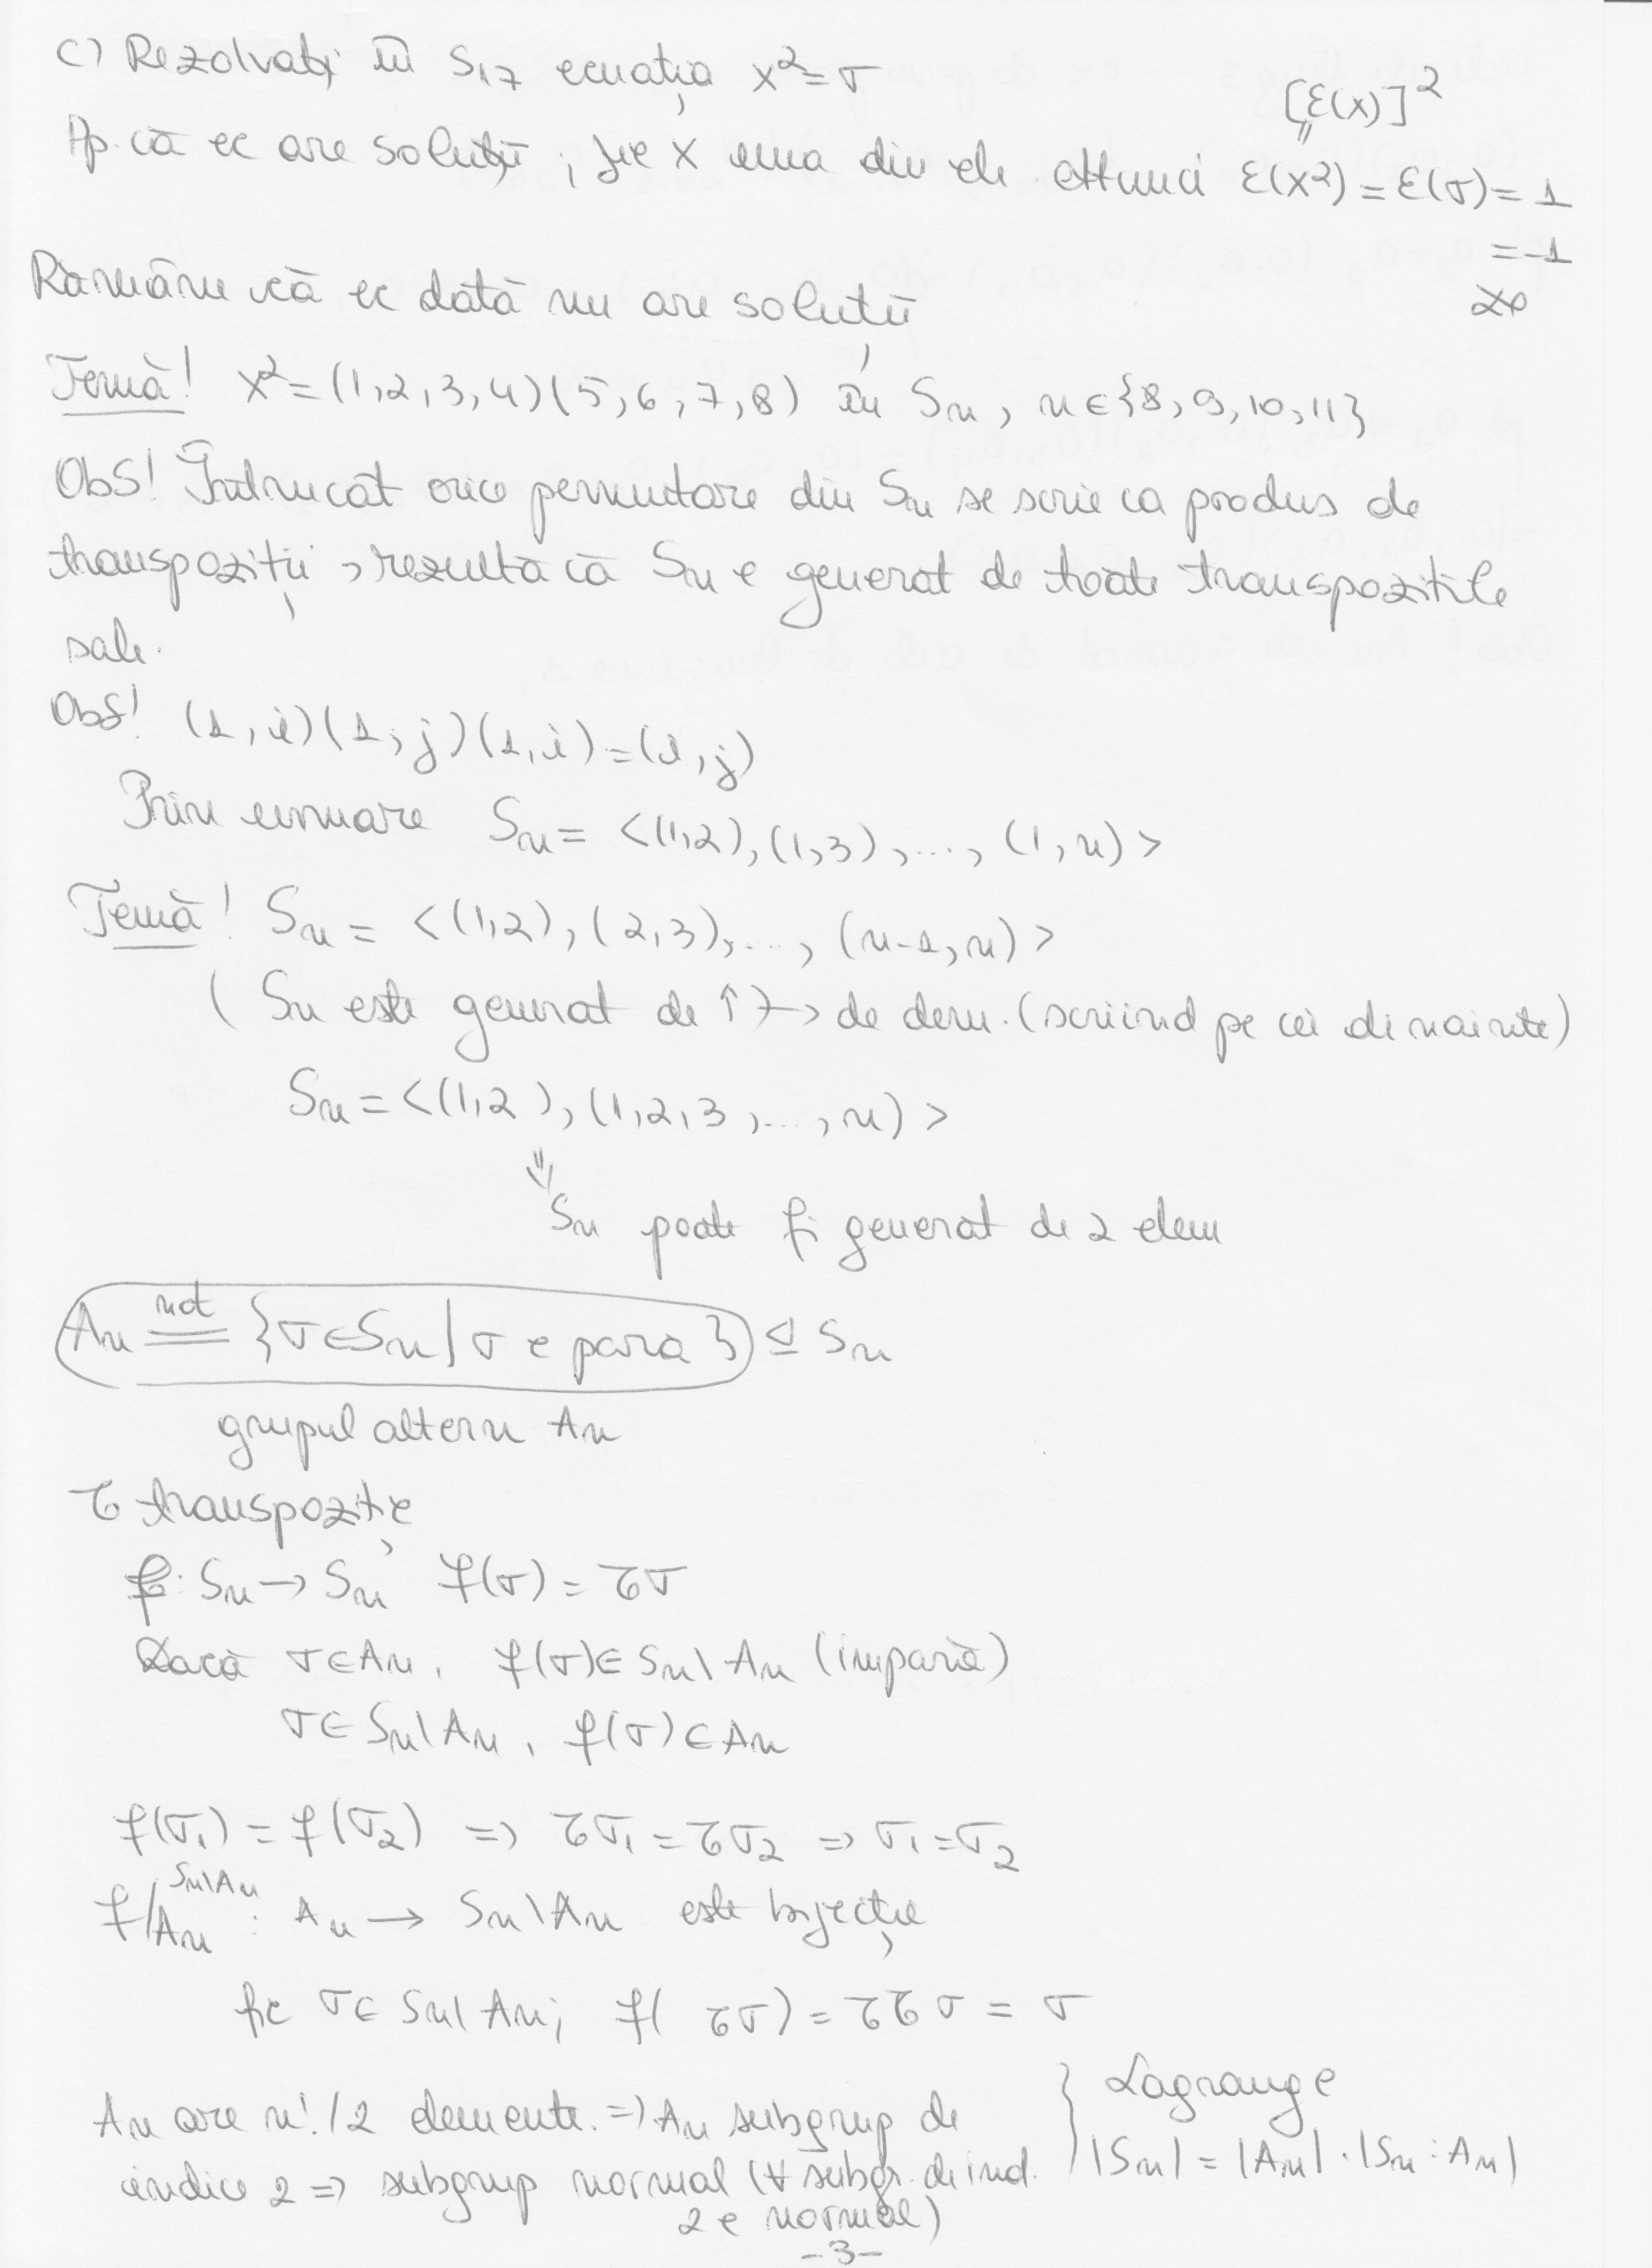 c) Rezolvați în S₁₇ ecuația x² = σ
[ε(x)]²
Pp. că ec are soluții ; fie x una din ele. Atunci ε(x²) = ε(σ) = 1
= -1
Rămâne că ec dată nu are soluții
Temă! x² = (1,2,3,4)(5,6,7,8) în Sn, n∈{8,9,10,11}
Obs! Întrucât orice permutare din Sn se scrie ca produs de
transpoziții, rezultă că Sn e generat de toate transpozitile
sale.
Obs! (1,i)(1,j)(1,i) = (i,j)
Prin urmare Sn = <(1,2),(1,3),...,(1,n)>
Temă! Sn = <(1,2),(2,3),...,(n-1,n)>
( Sn este generat de ↑ → de dem. (scriind pe cei dinainte)
Sn = <(1,2),(1,2,3,...,n)>
⇓
Sn poate fi generat de 2 elem
An not= {σ∈Sn | σ e para} ⊴ Sn
grupul altern An
τ transpoziție
f: Sn → Sn f(σ) = τσ
Dacă σ∈An, f(σ)∈Sn\An (impară)
σ∈Sn\An, f(σ)∈An
f(σ₁) = f(σ₂) => τσ₁ = τσ₂ => σ₁ = σ₂
f/An Sn\An : An → Sn\An este bijecție
fie σ∈Sn\An; f(τσ) = ττσ = σ
An are n!/2 elemente. => An subgrup de } Lagrange
indice 2 => subgrup normal (∀ subgr. de ind. |Sn| = |An|·|Sn:An|
2 e normal)
-3-